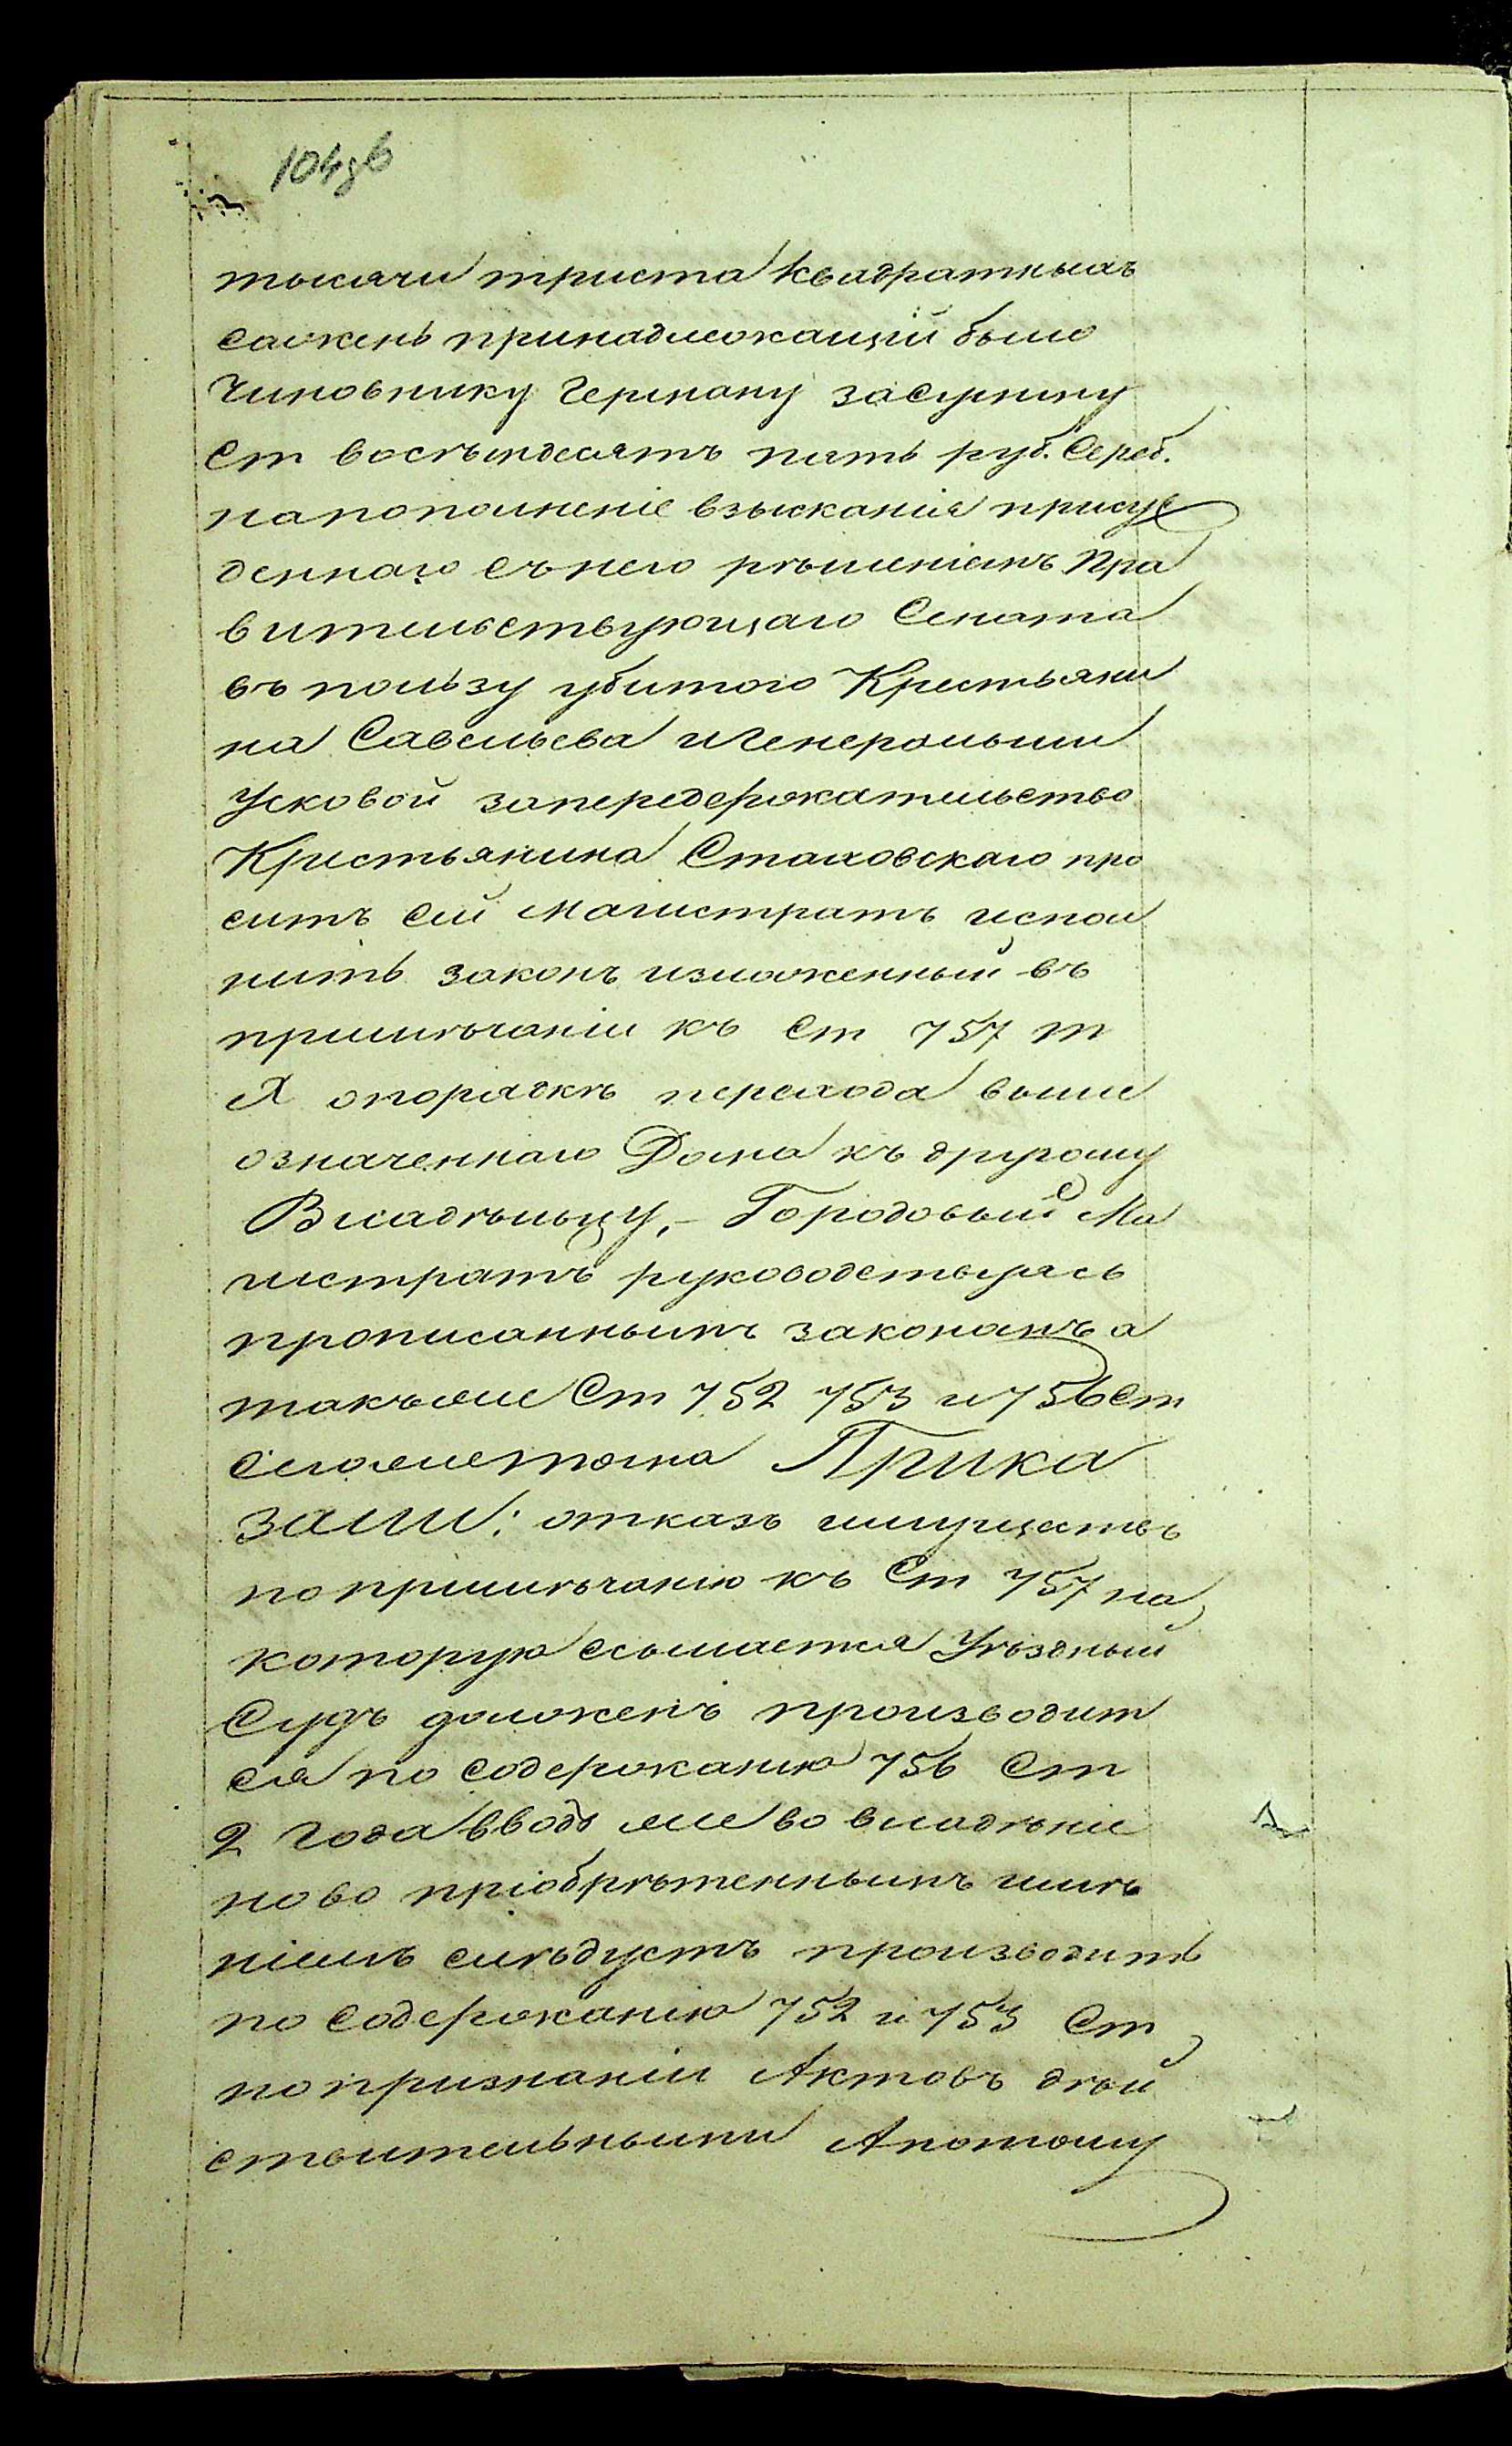 104зв
тысячи триста квадратныхъ
сажень принадлежащій было
Чиновнику Герману за сумму
ст восѣмдесятъ пять руб. Сереб.
на пополненіе взысканія присуж
деннаго съ него рѣшеніемъ Пра
вительствующаго Сената
въ пользу убитого Крестьяни
на Савельева и Генеральши
Усковой за передержательство
Крестьянина Стаховскаго про
ситъ сѣй Магистратъ испол
нить законъ изложенный въ
примѣчаніи къ Ст 757 т
X о порядкѣ перехода выше
означеннаго Дома къ другому
Владѣльцу, - Городовый Ма
гистратъ руководствуясь
прописаннымъ закономъ а
такъ же Ст 752 753 и 756 Ст
сего же тома Прика
зали: отказъ имуществъ
по примѣчанію къ Ст 757 на
которую ссылается Уѣздный
Судъ долженъ производит
ся по содержанію 756 Ст
2 года вводъ же во владѣніе
ново пріобрѣтеннымъ имѣ
ніемъ слѣдуетъ производить
по содержанію 752 и 753 Ст
по признаніи Актовъ дѣй
ствительными А потому